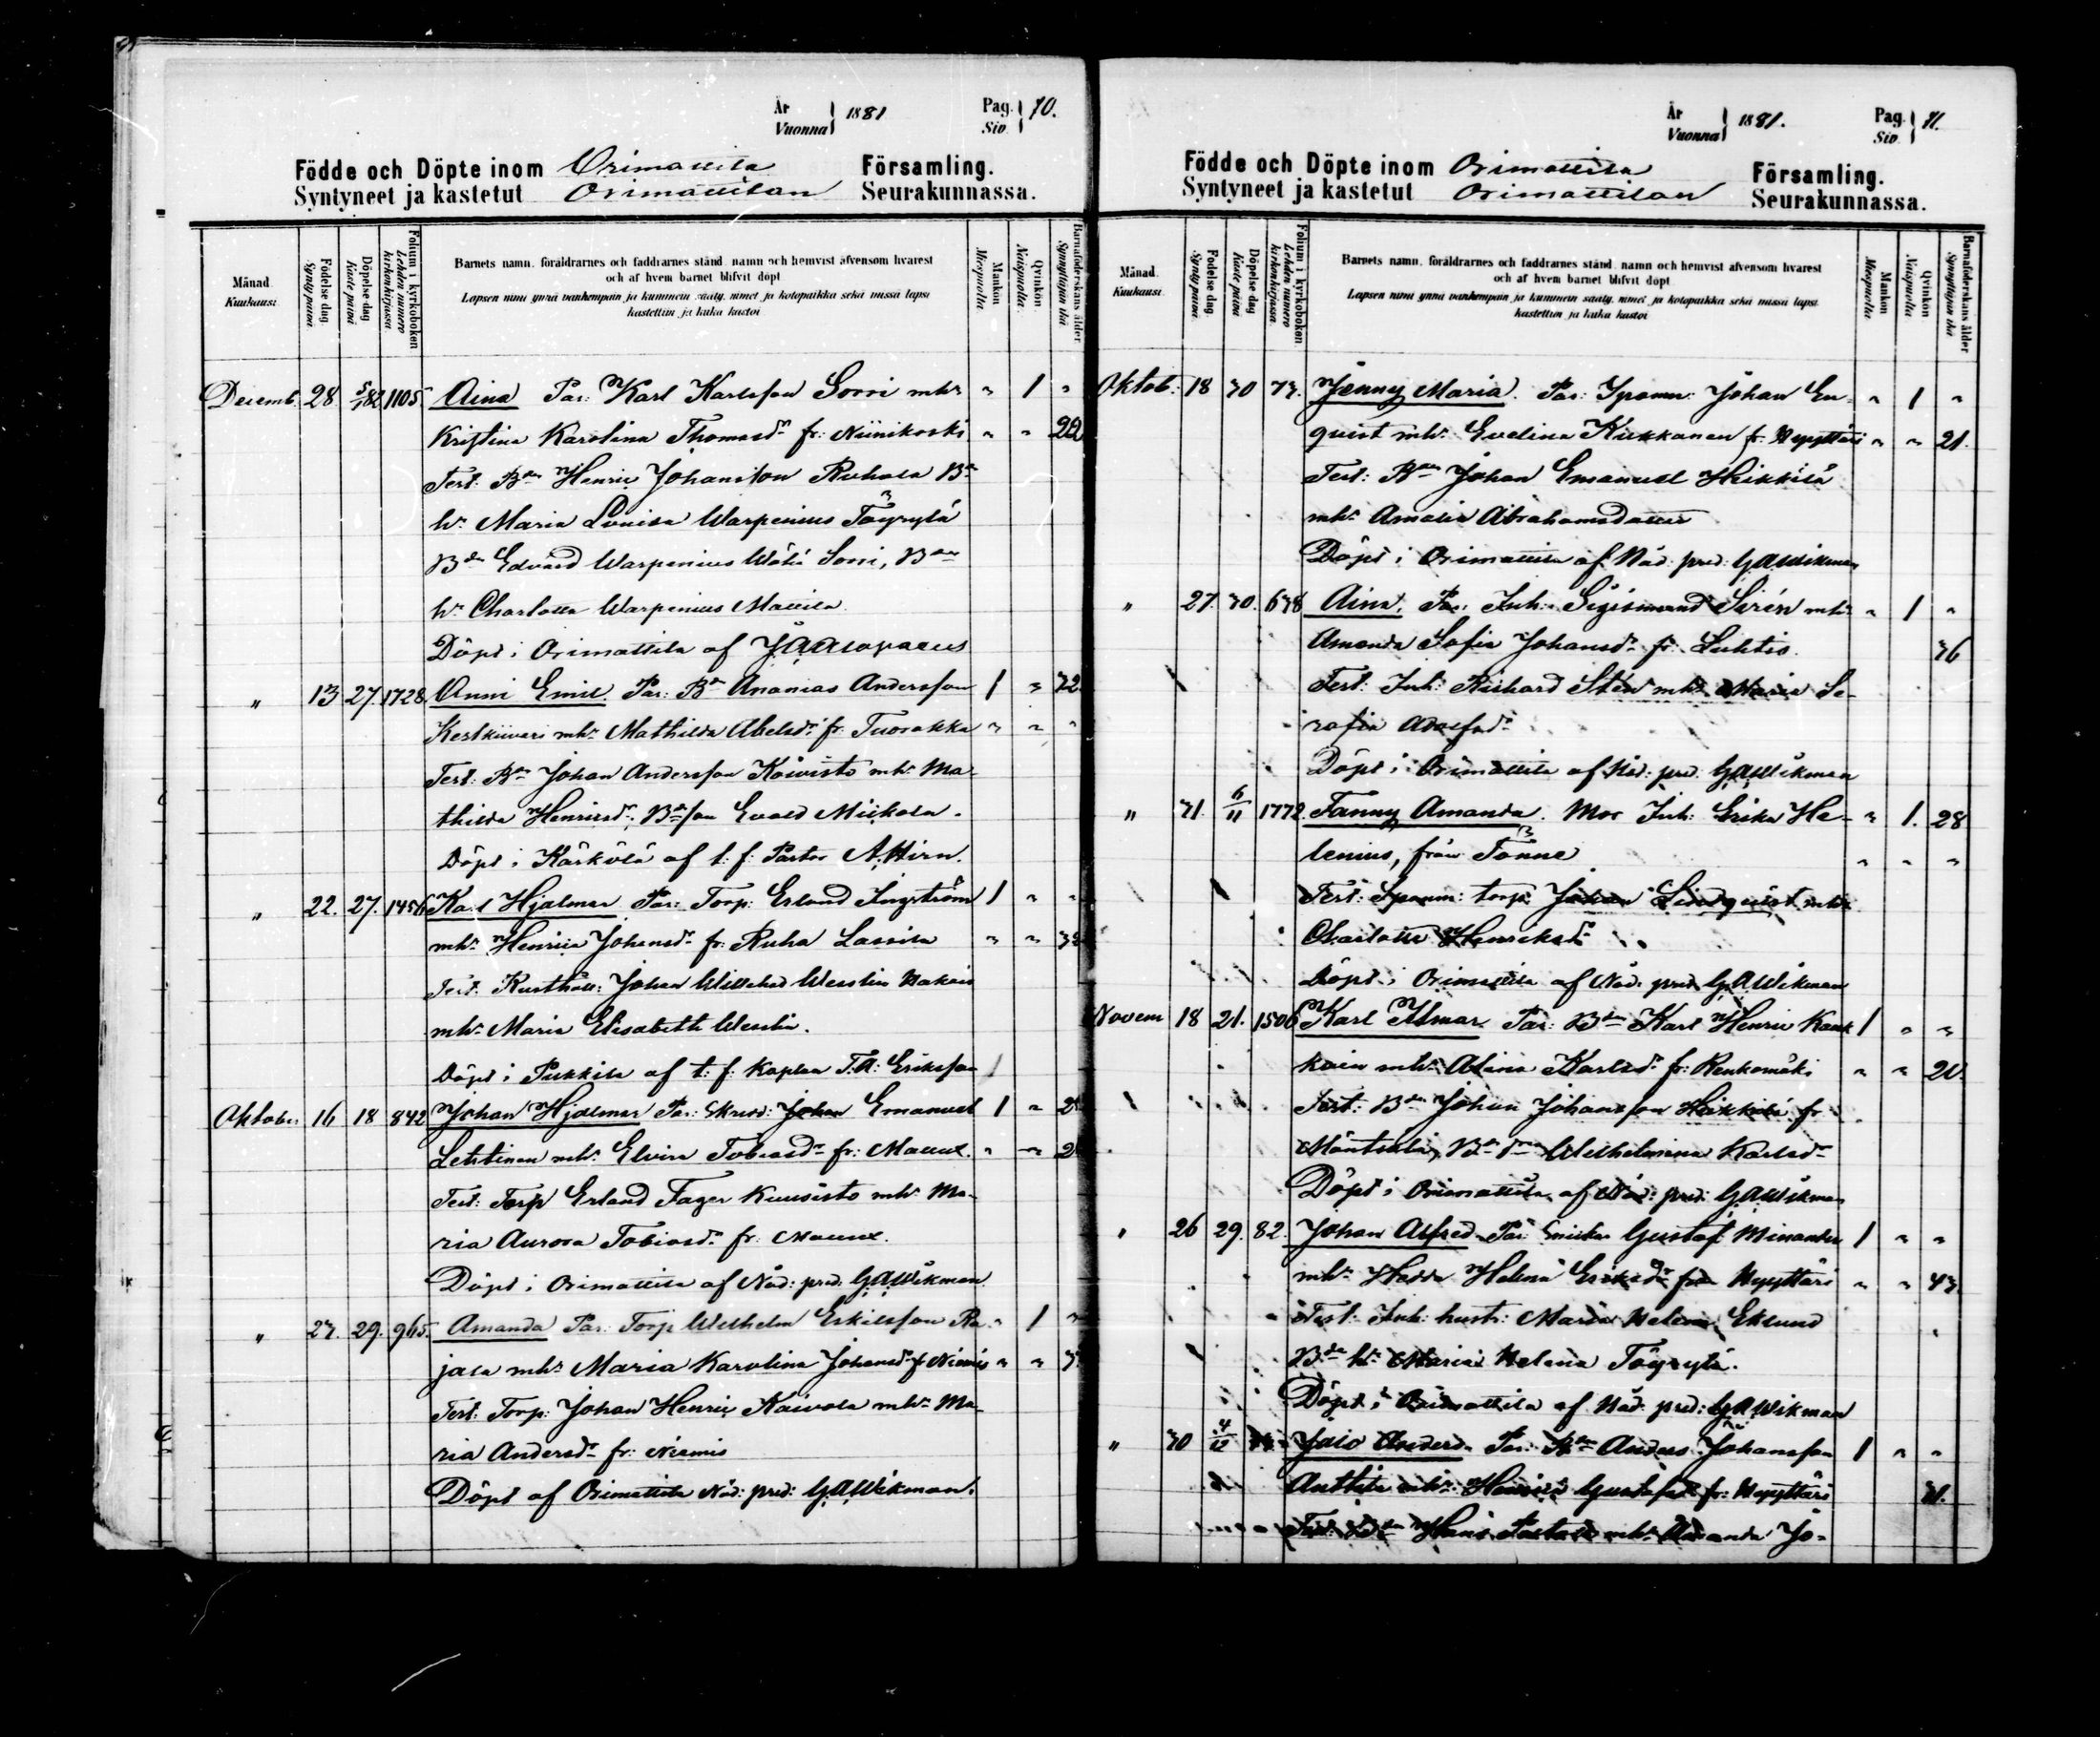 År Vuonna 1881 Pag. Siv. 70.
Födde och Döpte inom Orimattila Församling.
Syntyneet ja kastetut Orimattilan Seurakunnassa.
Månad. Kuukausi. Födelse dag. Synty päivä. Döpelse dag. Kaste päivä. Folium i kyrkoboken Lehden numero kirkonkirjassa.
Barnets namn, föräldrarnes och faddrarnes stånd, namn och hemvist äfvensom hvarest
och af hvem barnet blifvit döpt
Lapsen nimi ynnä vanhempain ja kummein sääty, nimet ja kotopaikka sekä missä lapsi
kastettiin ja kuka kastoi
Mankön Miespuolia. Qvinkön. Naispuolia. Barnaföderskans ålder Synnyttäjän ikä
Decemb. 28 5/1 82 1105. Aina Par: Karl Karlsson Sorri mhr " 1 "
Kristina Karolina Thomasdr fr: Niinikoski " " 22
Test: Bdn Henric Johansson Ruhala Bdn
hr Maria Lovisa Warpenius Töyrylä
Bdn Edvard Warpenius Sorri, Bdn
hr Charlotta Warpenius Mattila
Döpt i Orimattila af
" 13 27. 1728. Anni Emil. Par: Bdn Ananias Andersson 1 " 32
Keskiivari mhr Mathilda Abelsdr fr. Tuorakka " " "
Test: Bdn Johan Andersson Koivisto mhr Ma-
thilda Henricsdr, Bdn son Evald Mickola.
Döpt i Kärkölä af t: f: Pastor A. Hirn.
" 22. 27. 1456 Karl Hjalmar Par: Torp: Erland Ingström 1 " "
mhr Henrica Johansdr fr: Ruha Lassila " "
Test. Rusthåll: Johan Willehad Wesslin
mhr Maria Elisabeth Wesslin.
Döpt i Pukkila af t: f: Kaplan F.A: Eriksson
Oktober 16 18 842 Johan Hjalmar Par: Johan Emanuel 1 "
Lehtinen mhr Elvira Tobiasdr fr: " "
Test: Torp Erland Fager Kuusisto mhr Ma-
ria Aurora Tobiasdr fr.
Döpt i Orimattila af Nåd: pred: G.A.Wikman
" 23. 29. 965. Amanda Par: Torp Wilhelm Eskilsson Ra- " 1 "
jala mhr Maria Karolina Johansdr fr Niemis " "
Test: Torp: Johan Henric Koivola mhr Ma-
ria Andersdr fr: Niemis
Döpt af Orimattila Nåd: pred: G.A.Wikman.
År Vuonna 1881. Pag. Siv. 71.
Födde och Döpte inom Orimattila Församling.
Syntyneet ja kastetut Orimattilan Seurakunnassa.
Månad. Kuukausi. Födelse dag. Synty päivä. Döpelse dag. Kaste päivä Folium i kyrkoboken Lehden numero kirkonkirjassa.
Barnets namn, föräldrarnes och faddrarnes stånd, namn och hemvist äfvensom hvarest
och af hvem barnet blifvit döpt
Lapsen nimi ynnä vanhempain ja kummein sääty, nimet ja kotopaikka sekä missä lapsi
kastettiin ja kuka kastoi
Mankön Miespuolia Qvinkön. Naispuolia Barnaföderskans ålder Synnyttäjän ikä
Oktob: 18 30 73. Jenny Maria. Par: Johan En- " 1 "
quist mhr Evelina Kiukkanen fr. Myyttäri " " 21.
Test: Bdn Johan Emanuel Heikkilä
mhr Amalia Abrahamsdotter
Döpt i Orimattila af Nåd: pred: G.A.Wikman
" 27. 30. 638 Aina, Par: Inh: Sigismund Sirén mhr " 1 "
Amanda Sofia Johansdr fr: Luhtio. 36
Test: Inh: Rickard Stén mhr Maria Se-
rafia Adolfsdr
Döpt i Orimattila af Nåd: pred: G.A.Wikman
" 31. 6/11 1772. Fanny Amanda. Mor Inh: Erika He- " 1. 28
lenius, från Tönnö " " "
Test: torp: Johan Lindquist mhr
Charlotta Henriksdr
Döpt i Orimattila af Nåd: pred: G.A.Wikman
Novem 18 21. 1506 Karl Ilmar. Par: Bdn Karl Henric Kank- 1 " "
kain mhr Alina Karlsdr fr: Renkomäki " " 20.
Test: Bdn Johan Johansson Heikkilä fr.
Mäntsälä, Bdn Wilhelmina Karlsdr
Döpt i Orimattila af Nåd: pred: G.A.Wikman
" 26 29. 82. Johan Alfred Par: Snickar Gustaf Minander 1 " "
mhr Hedda Helena Eriksdr från Myyttäri " " 43
Test: Inh: hustr: Maria Helena Eklund
Bdn hr Maria Helena Töyrylä.
Döpt i Orimattila af Nåd: pred: G.A.Wikman
" 30 4/12 Par: Bdn Anders Johansson 1 " "
Anttila mhr: Gustafsdr fr: Myyttäri 31.
Test: Bdn mhr Amanda Jo-